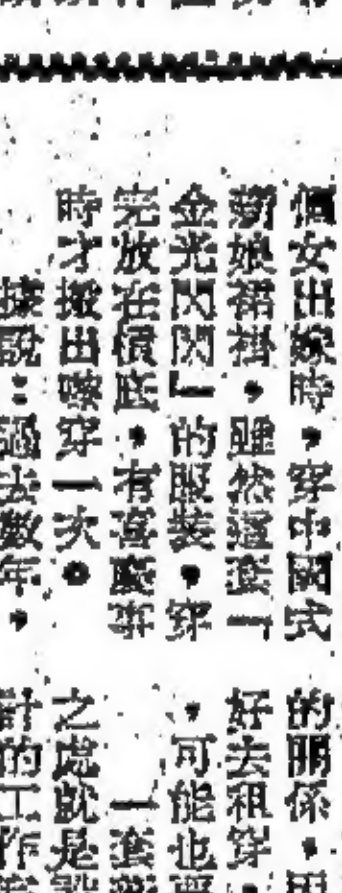 個女出嫁時，穿中國式
新娘裙褂，雖然這套「
金光閃閃」的服裝，穿
完放在櫃底，有喜慶事
時才搬出嚟穿一次。
據說：過去數年，
的關係，
好去租穿，
，可能也
一套
之處就是
計的工作